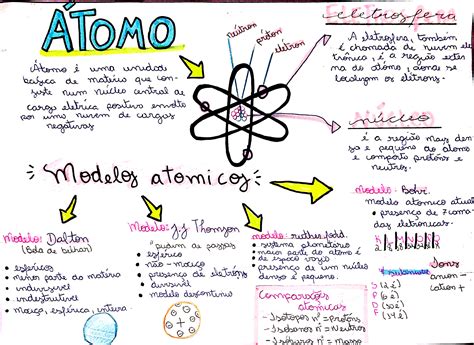 ÁTOMO
Átomo é uma unidade
básica de matéria que con-
siste num núcleo central de
carga elétrica positiva envolto
por uma nuvem de cargas
negativas
nêutron
próton
elétron
eletrosfera
A eletrosfera, também
é chamada de nuvem ele
trônica, é a região exter
na do átomo, aonde se
localizam os elétrons.
núcleo
é a região mais den
sa e pequena do átomo
e comporta prótons e
neutros.
Modelos atomicos
Modelo: Dalton
(Bola de bilhar)
• esféricos
• menor parte da matéria
• indivisível
• indestrutível
• maciço, esférico, inteira
Modelo: J.J Thomson
"pudim de passas"
• esférico
• não-maciço
• presença de elétrons
• divisível
• modelo descontínuo
modelo:
• sistema planetário
• maior parte do átomo é
de espaço vazio
• presença de um núcleo
denso e pequeno.
Modelo: Bohr.
modelo atomico atual
• presença de 7 cama
das eletrônicas.
Comparações
atomicas
- Isótopos n° = Prótons
- Isótonos n° = Neutros
- Isóbaros n° = Massa
S (2 é)
P (6 é)
D (10 é)
F (14 é)
Íons
anion -
cation +